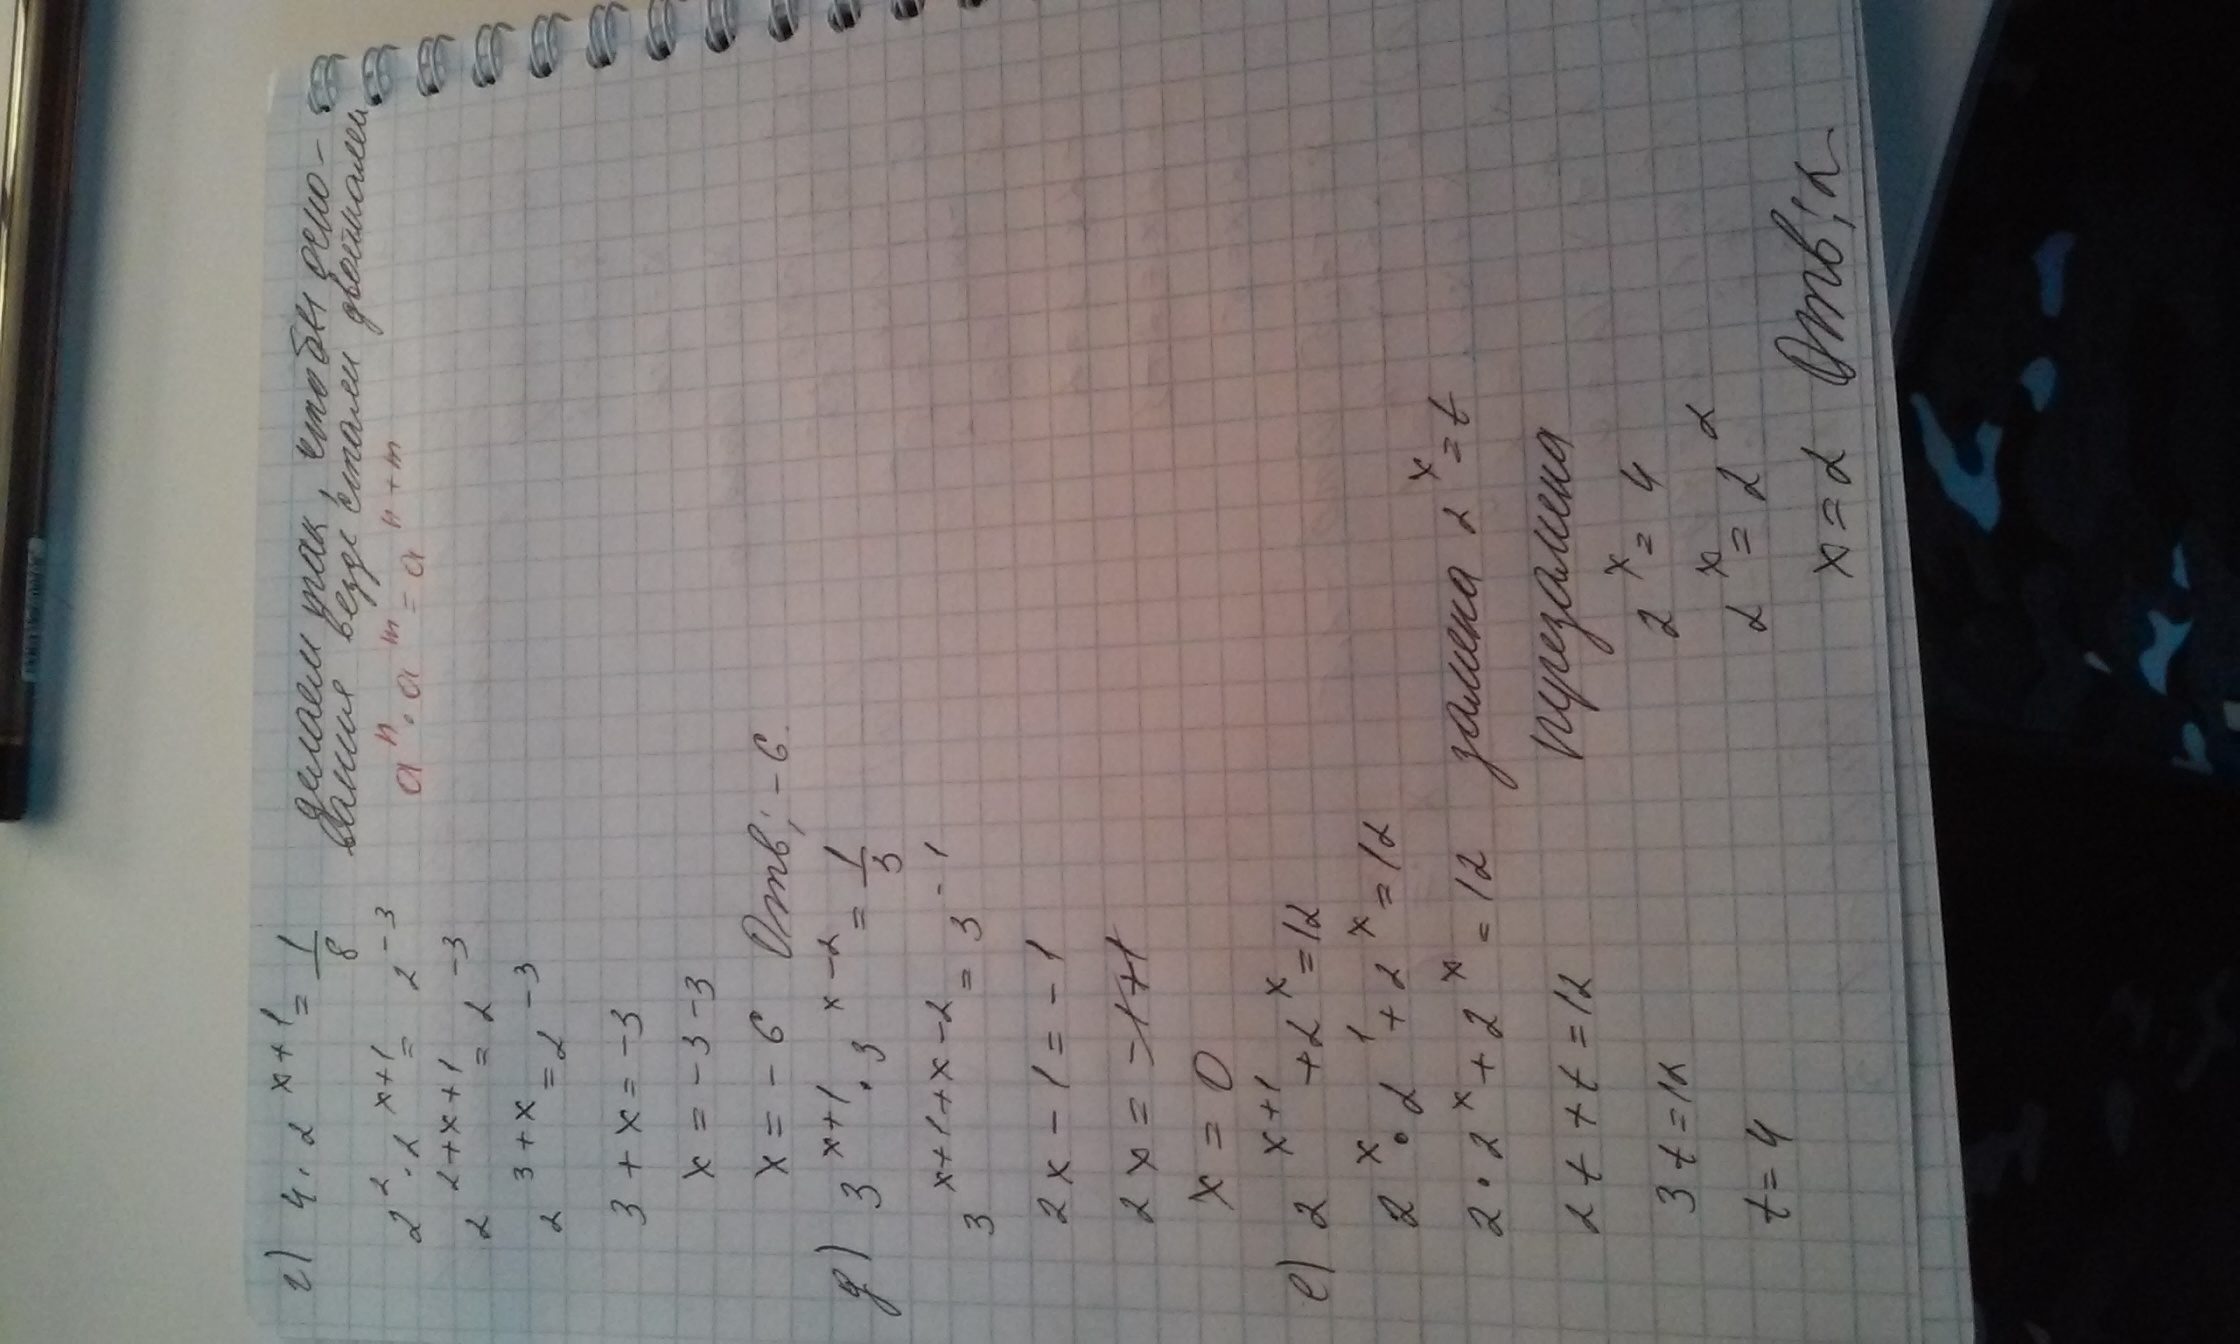 г) 4·2^(x+1) = 1/8 делаем так, чтобы осно-
вания везде стали двойками
a^n·a^m = a^(n+m)
2^2·2^(x+1) = 2^(-3)
2^(2+x+1) = 2^(-3)
2^(3+x) = 2^(-3)
3+x=-3
x=-3-3
x=-6 Отв; -6.
д) 3^(x+1)·3^(x-2) = 1/3
3^(x+1+x-2) = 3^(-1)
2x-1=-1
2x=-1+1
x=0
е) 2^(x+1)+2^x=12
2^x·2^1+2^x=12
2·2^x+2^x=12 замена 2^x=t
2t+t=12 пурезамена
3t=12 2^x=4
t=4 2^x=2^2
x=2 Отв; 2